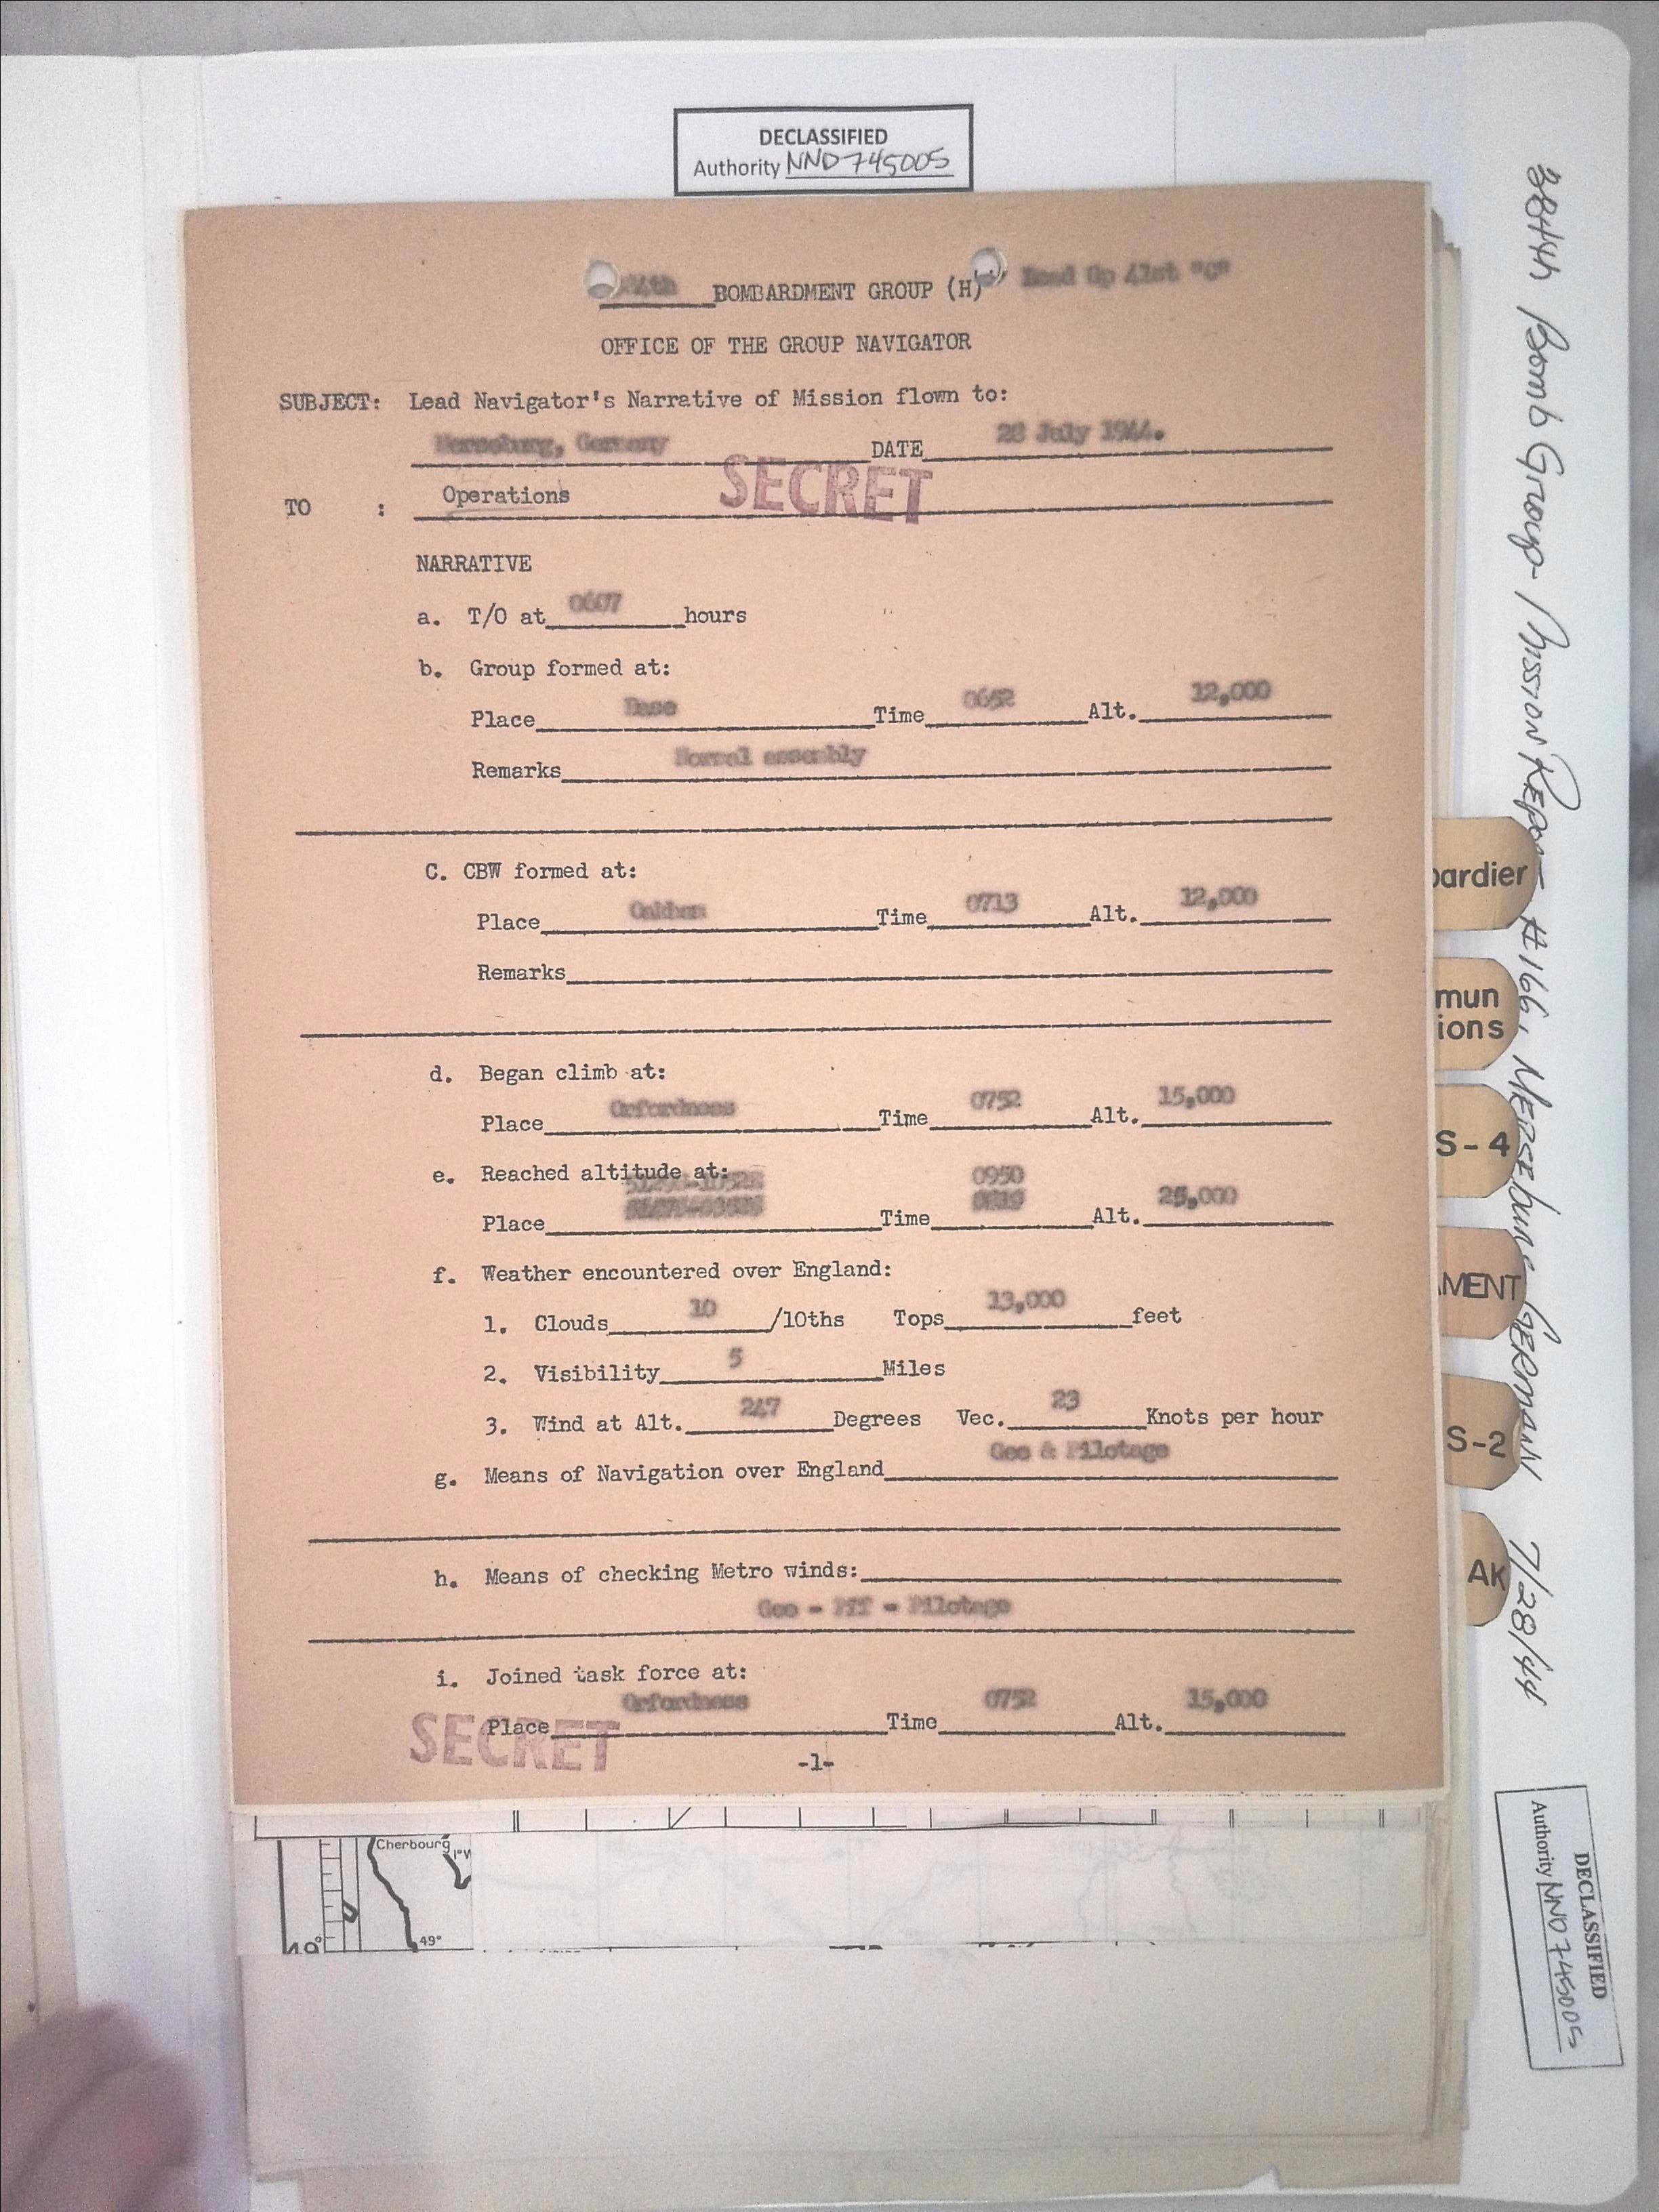 DECLASSIFIED
Authority NND 745005
84th BOMBARDMENT GROUP (H) Lead Gp 41st "C"
OFFICE OF THE GROUP NAVIGATOR
SUBJECT: Lead Navigator's Narrative of Mission flown to:
Merseburg, Germany DATE 28 July 1944.
SECRET
TO : Operations
NARRATIVE
a. T/O at 0607 hours
b. Group formed at:
Place Base Time 0652 Alt. 12,000
Remarks Normal assembly
C. CBW formed at:
Place Time 0713 Alt. 12,000
Remarks
d. Began climb at:
Place Orfordness Time 0752 Alt. 15,000
e. Reached altitude at:
0950
Place Time Alt. 25,000
f. Weather encountered over England:
1. Clouds 10 /10ths Tops 13,000 feet
2. Visibility 5 Miles
3. Wind at Alt. 247 Degrees Vec. 23 Knots per hour
g. Means of Navigation over England Gee & Pilotage
h. Means of checking Metro winds:
Gee - Pff - Pilotage
i. Joined task force at:
Place Orfordness Time 0752 Alt. 15,000
SECRET
-1-
Cherbourg
1°W
49°
49°
bardier
mun
ions
S-4
AMENT
S-2
AK
384th Bomb Group - Mission Report #166, Merseburg GERMANY 7/28/44
DECLASSIFIED
Authority NND 745005